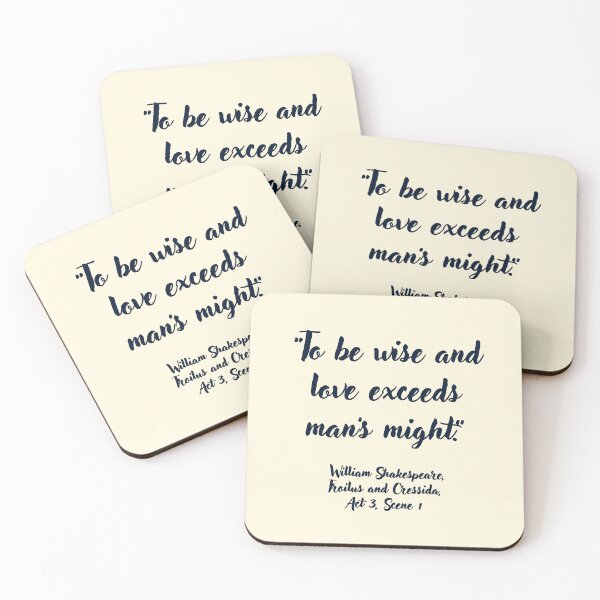 "To be wise and
love exceeds
might."
"To be wise and
love exceeds
man's might."
William
"To be wise and
love exceeds
man's might."
William
Troilus and
Act 3,
"To be wise and
love exceeds
man's might."
William Shakespeare,
Troilus and Cressida,
Act 3, Scene 1